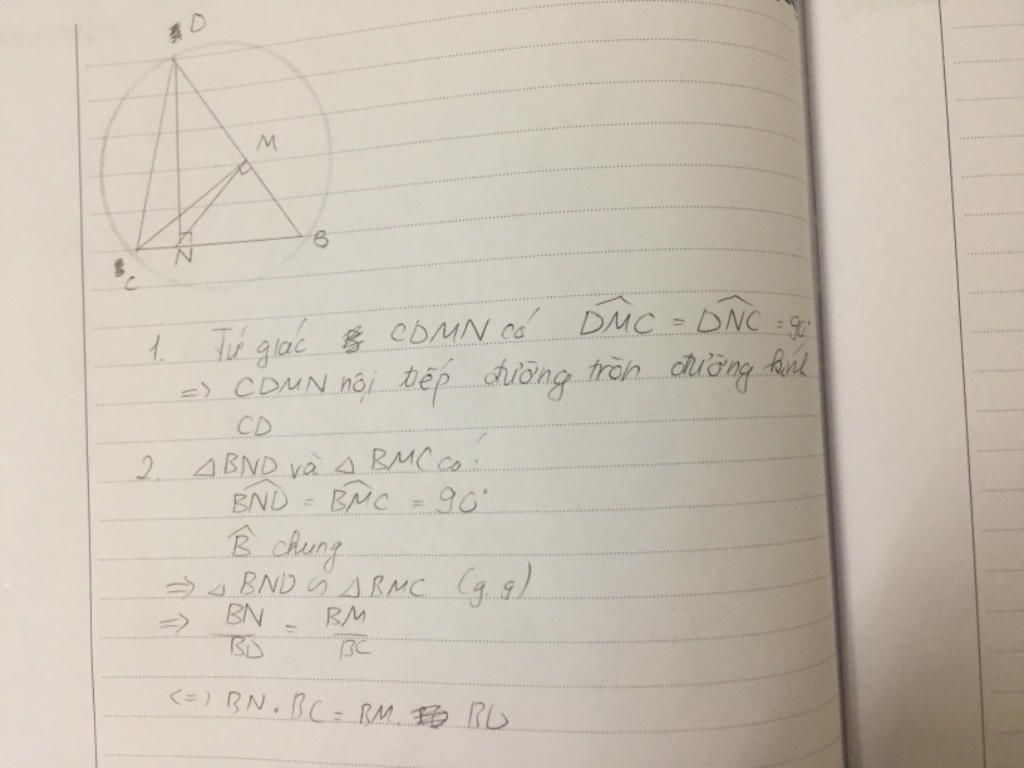 D
M
B
N
C
1. Tứ giác CDMN có DMC = DNC = 90°
=> CDMN nội tiếp đường tròn đường kính
CD
2. △BND và △BMC có:
BND = BMC = 90°
B chung
=> △BND ∽ △BMC (g.g)
=> BN/BD = BM/BC
<=> BN.BC = BM. BD